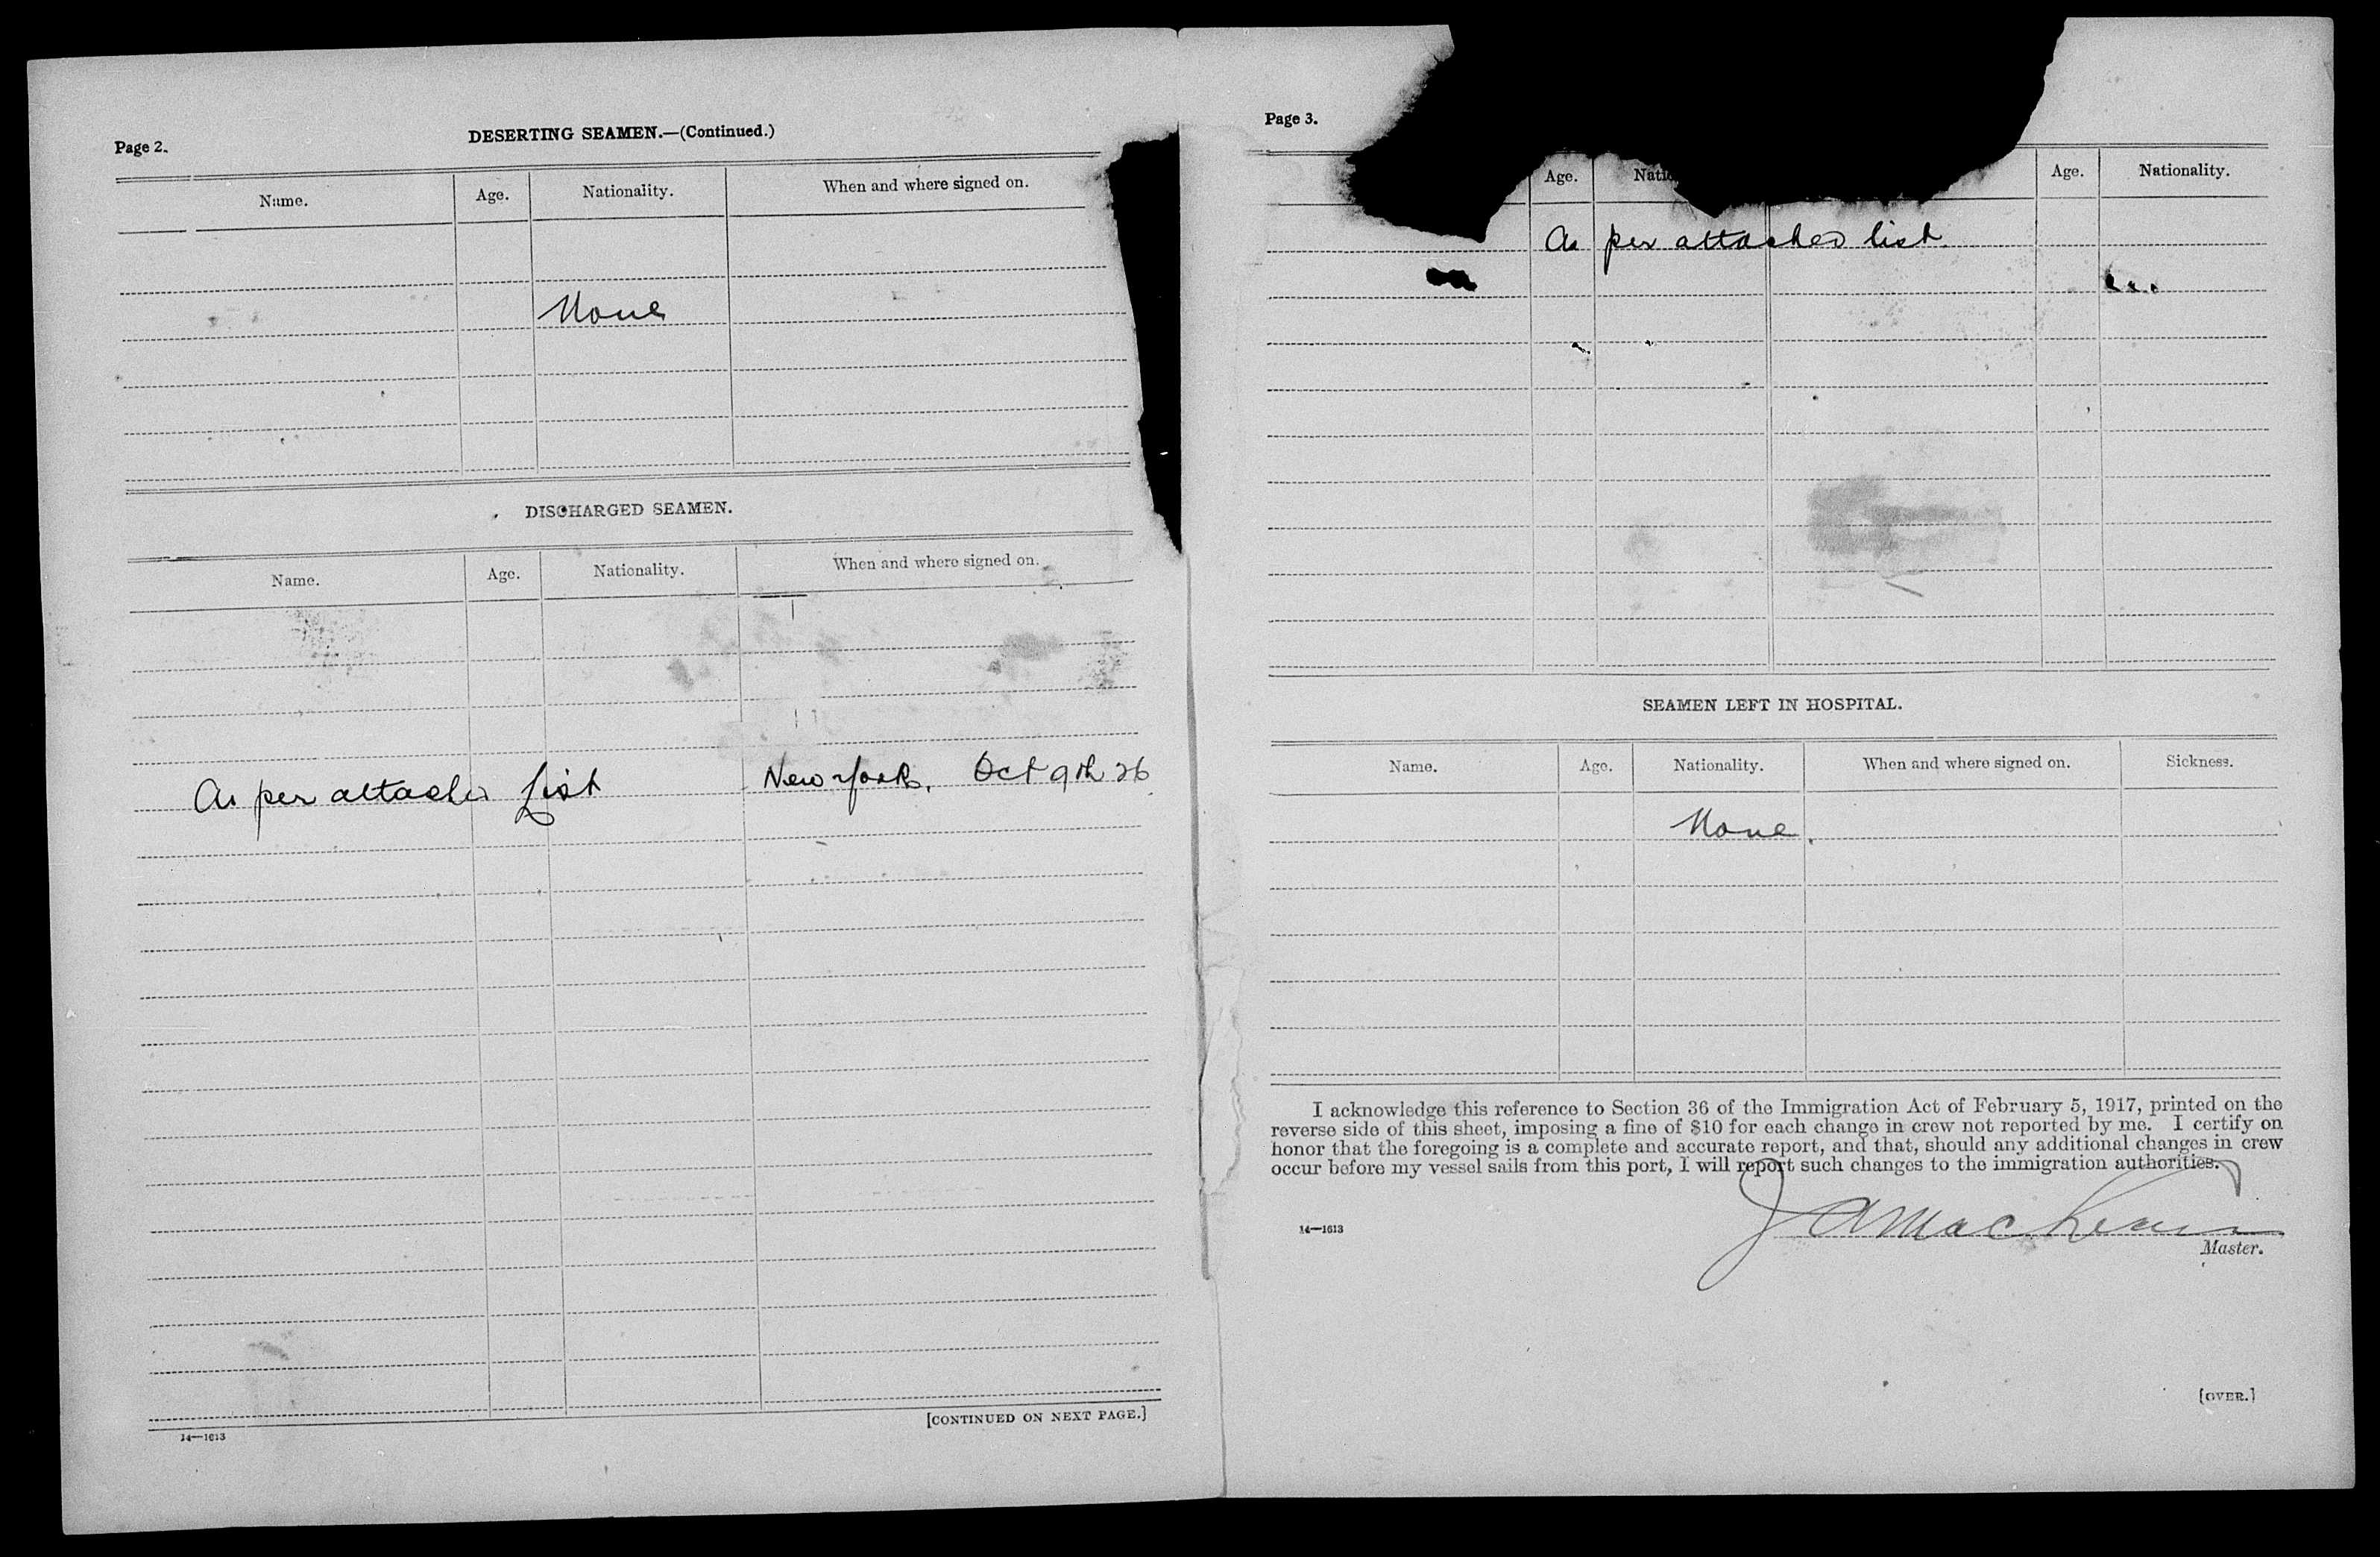 Page 2.
DESERTING SEAMEN.—(Continued.)
Name. Age. Nationality. When and where signed on.
None
DISCHARGED SEAMEN.
Name. Age. Nationality. When and where signed on.
As per attached List New York, Oct 9th 26
[CONTINUED ON NEXT PAGE.]
14—1613
Page 3.
Age. Age. Nationality.
As per attached list
SEAMEN LEFT IN HOSPITAL.
Name. Age. Nationality. When and where signed on. Sickness.
None
I acknowledge this reference to Section 36 of the Immigration Act of February 5, 1917, printed on the
reverse side of this sheet, imposing a fine of $10 for each change in crew not reported by me. I certify on
honor that the foregoing is a complete and accurate report, and that, should any additional changes in crew
occur before my vessel sails from this port, I will report such changes to the immigration authorities.
14—1613
Master.
[OVER.]